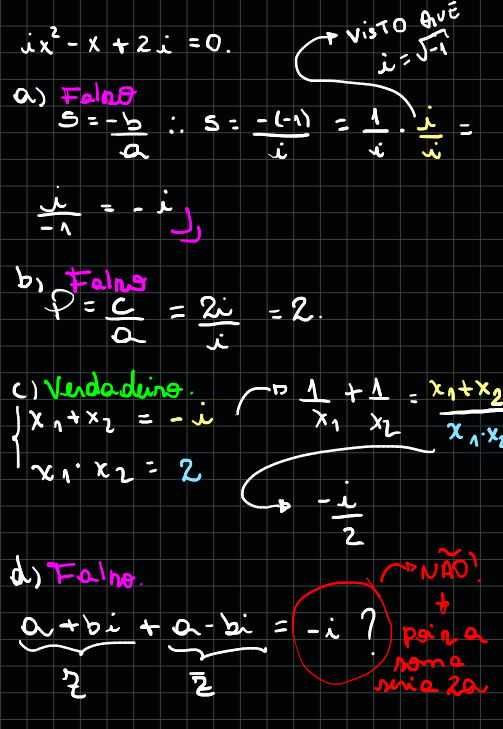 ix² - x + 2i = 0.
→ VISTO QUE
i = √-1
a) Falso
S = -b/a ∴ S = -(-1)/i = 1/i · i/i =
i/-1 = -i
b) Falso
P = c/a = 2i/i = 2.
c) Verdadeiro.
x₁ + x₂ = -i → 1/x₁ + 1/x₂ = x₁+x₂/x₁·x₂
x₁ · x₂ = 2
→ -i/2
d) Falso.
→ NÃO!
a + bi + a - bi = -i ?
z z̄
pois a
soma
seria 2a